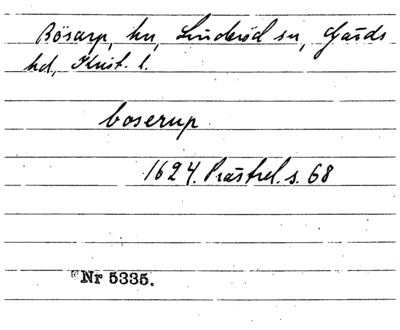 Bösarp, hn, Linderöd sn, Gärds
hd, Krist. l.
boserup
1624. Prästrel. s. 68
Nr 5335.